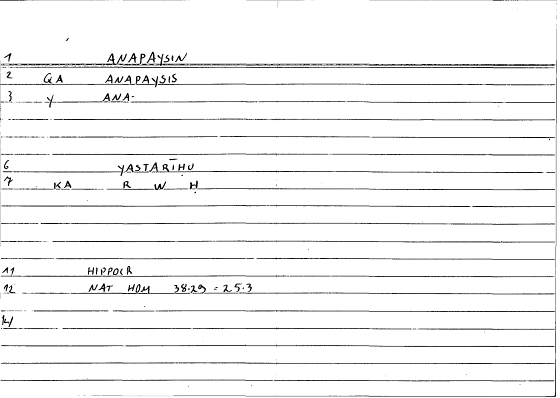 1 ANAPAYSIN
2 GA ANAPAYSIS
3 y ANA-
6 YASTARĪḤU
7 KA R W Ḥ
11 HIPPOCR
12 NAT HOM 38.29 = 25.3
14